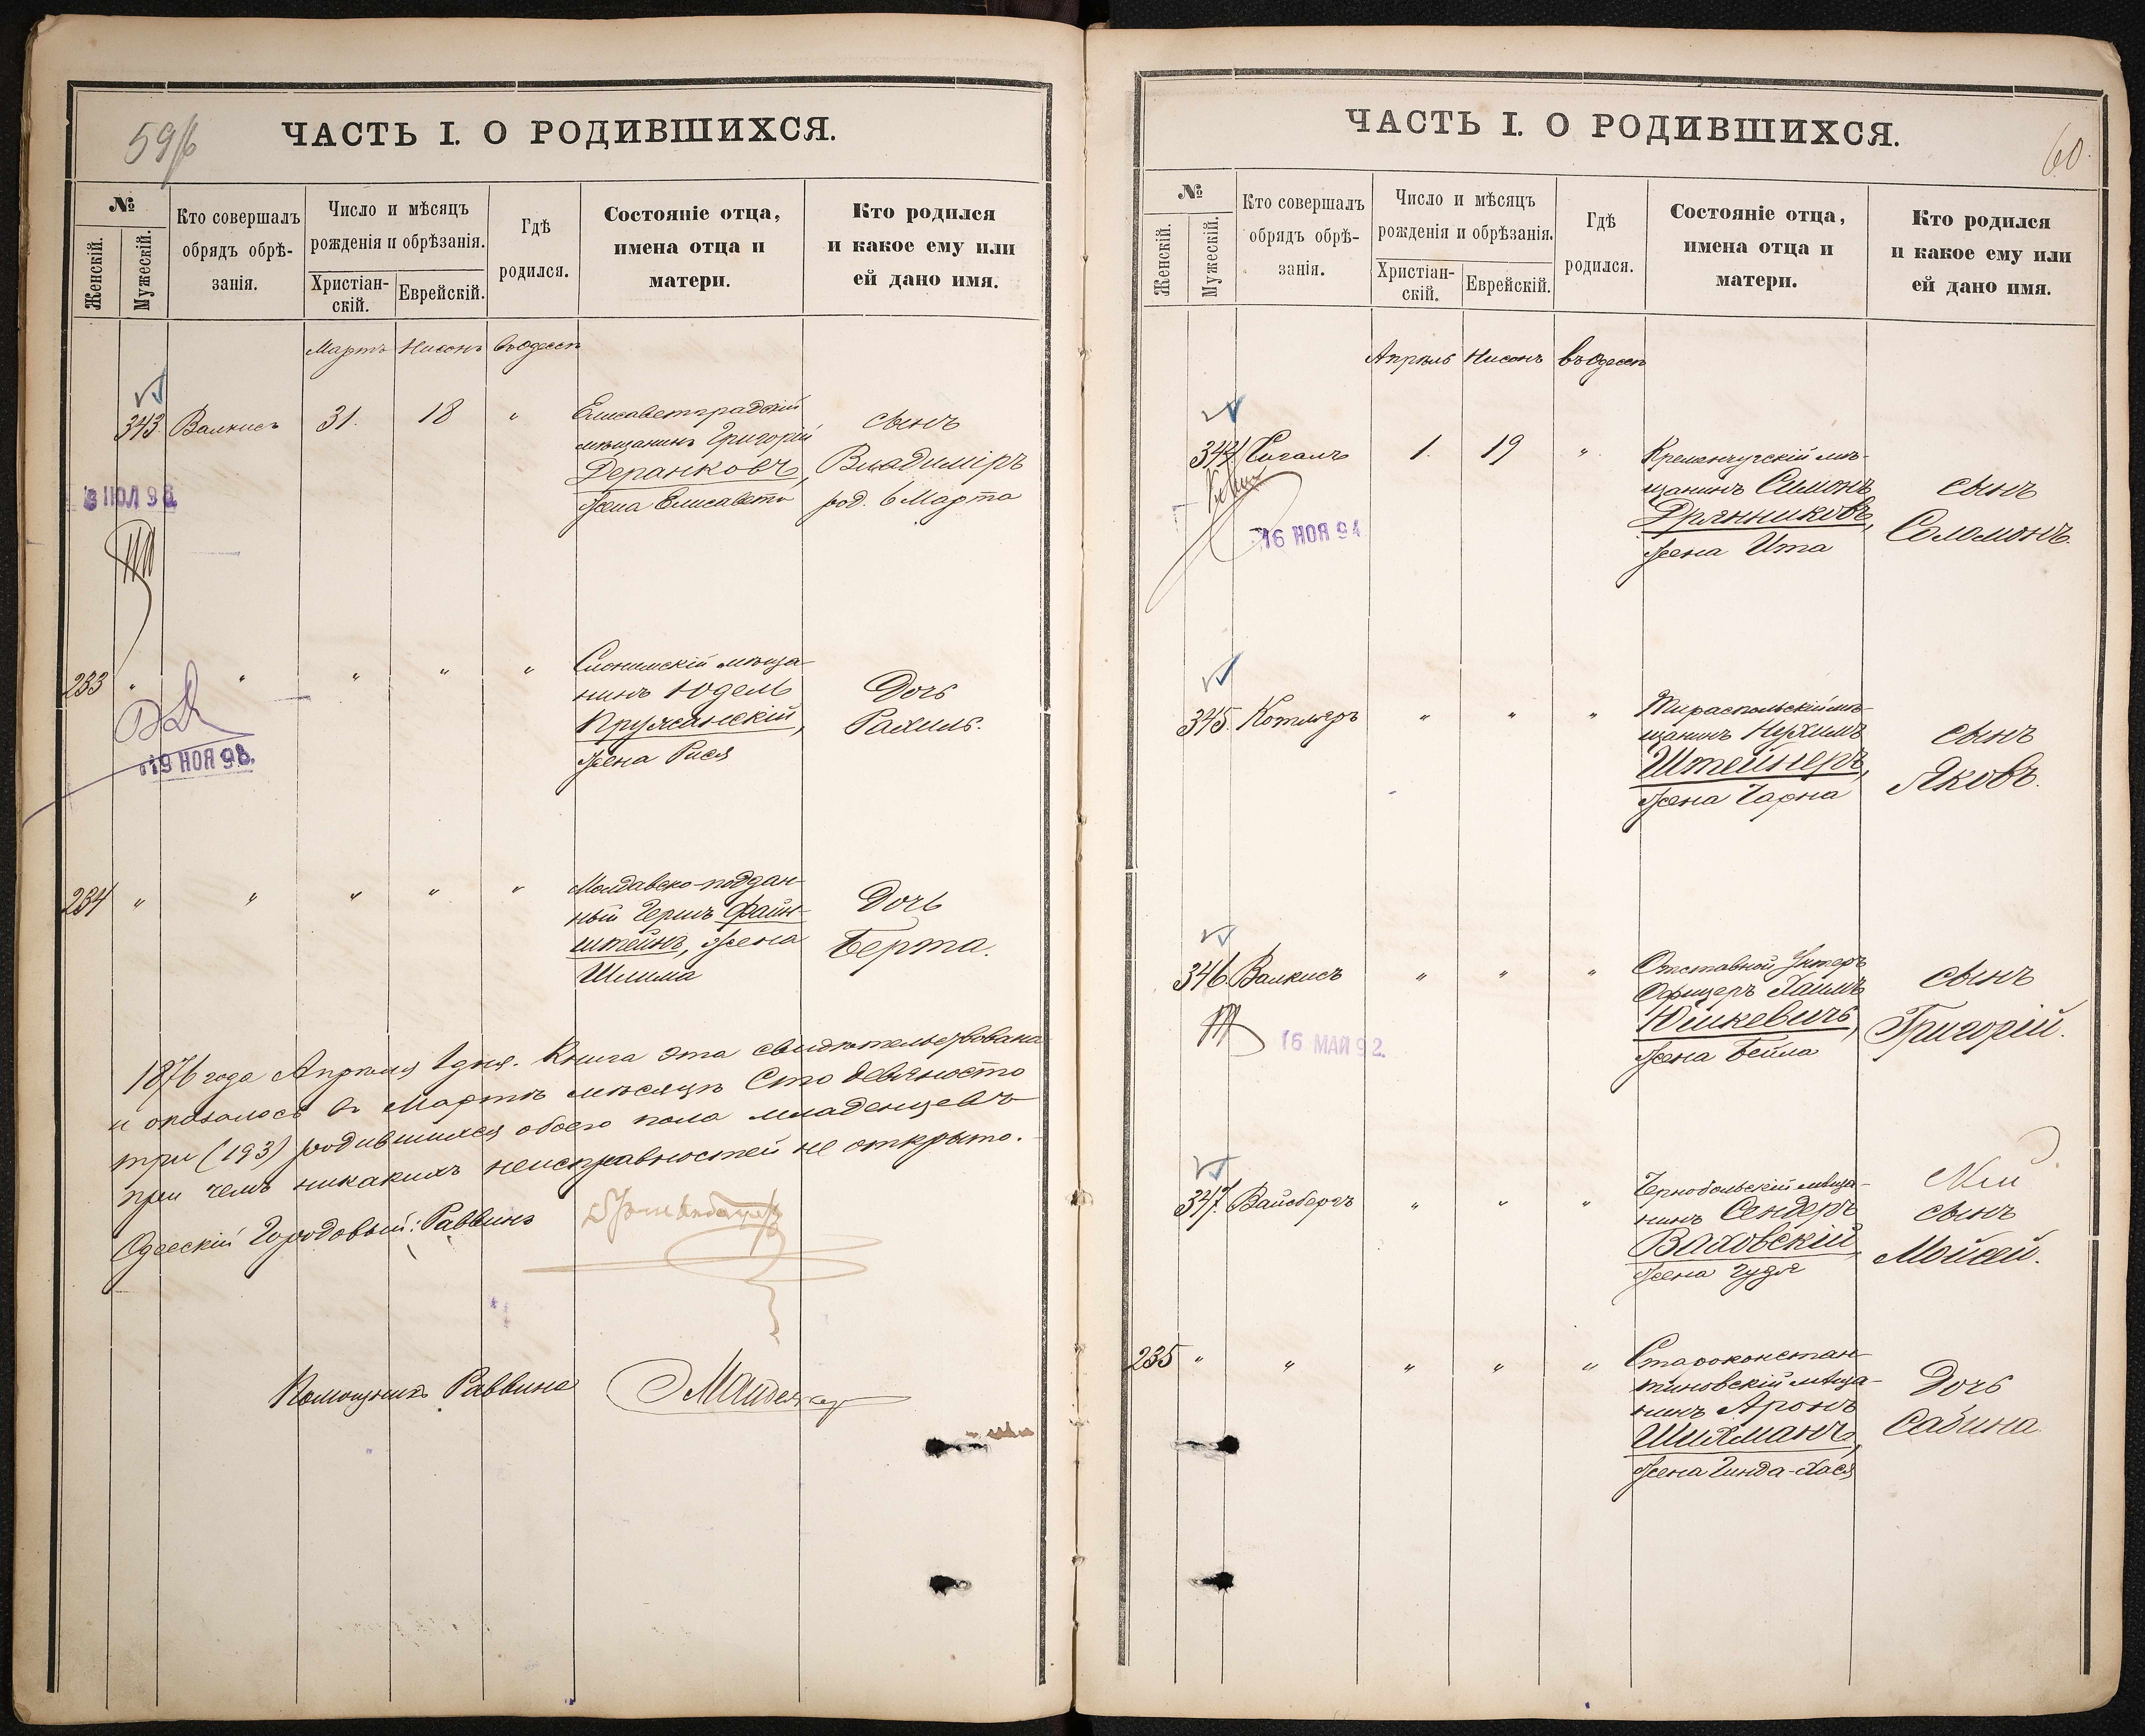 59б
ЧАСТЬ I. О РОДИВШИХСЯ.
№
Женскій.
Мужескій.
Кто совершалъ
обрядъ обрѣ-
занія.
Число и мѣсяцъ
рожденія и обрѣзанія.
Христіан-
скій.
Еврейскій.
Гдѣ
родился.
Состояніе отца,
имена отца и
матери.
Кто родился
и какое ему или
ей дано имя.
Мартъ Нисонъ въ Одессѣ
343. Валкисъ 31. 18 "
Елисаветградскій
мѣщанинъ Григорій
Деранковъ,
жена Елисавета
сынъ
Владиміръ
род. 6 Марта
233 " " " " "
Слонимскій мѣща-
нинъ Юдель
Пружанскій,
жена Рися
Дочь
Рахиль.
19 НОЯ 98.
234 " " " " "
Молдавско-поддан-
ный Гершъ Файн-
штейнъ, жена
Шлима
Дочь
Берта.
1876 года Апрѣля 1 дня. Книга эта свидѣтельствована
и оказалось въ Мартѣ мѣсяцѣ Сто девяносто
три (193) родившихся обоего пола младенцевъ
при чемъ никакихъ неисправностей не открыто.
Одесскій Городовый Раввинъ
Помощникъ Раввина
ЧАСТЬ I. О РОДИВШИХСЯ.
60.
№
Женскій.
Мужескій.
Кто совершалъ
обрядъ обрѣ-
занія.
Число и мѣсяцъ
рожденія и обрѣзанія.
Христіан-
скій.
Еврейскій.
Гдѣ
родился.
Состояніе отца,
имена отца и
матери.
Кто родился
и какое ему или
ей дано имя.
Апрѣль Нисонъ въ Одессѣ
344 Сигалъ 1. 19 "
Кременчугскій мѣ-
щанинъ Симонъ
Дрянниковъ,
жена Ита
сынъ
Соломонъ.
16 НОЯ 94
345. Котляръ " " "
Тираспольскій мѣ-
щанинъ Нухимъ
Штейнеръ,
жена Чарна
сынъ
Яковъ.
346. Валкисъ " " "
Отставной Унтеръ
Офицеръ Хаимъ
Юшкевичъ,
жена Бейла
сынъ
Григорій.
16 МАЯ 92.
347. Вайсбергъ " " "
Чернобольскій мѣща-
нинъ Сендеръ
Ваховскій,
жена Гудя
сынъ
Мойсей.
235 " " " " "
Староконстан-
тиновскій мѣща-
нинъ Аронъ
Шихманъ,
жена Гинда-Хася
Дочь
Сабина